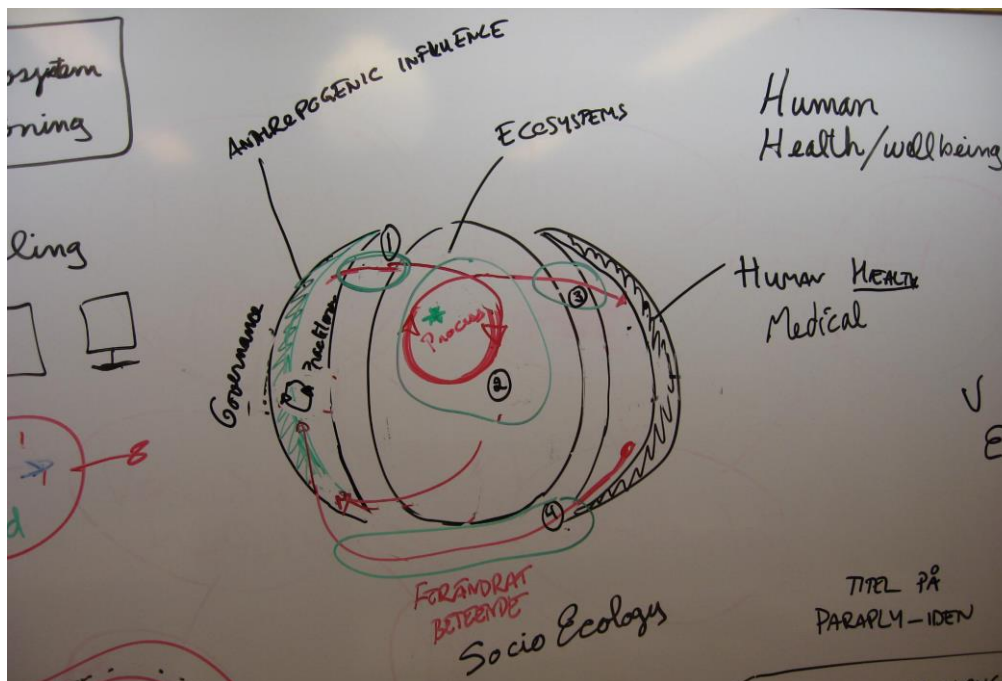 osystem
oning
ling
ANTHROPOGENIC INFLUENCE
ECOSYSTEMS
Human
Health/wellbeing
Human HEALTH
Medical
Governance
Process
1
2
3
4
8
d
FÖRÄNDRAT
BETEENDE
Socio Ecology
TITEL PÅ
PARAPLY-IDEN